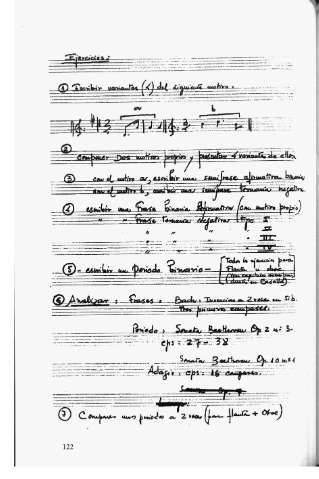 Ejercicios:
① Escribir variantes (4) del siguiente motivo.
a b
②
componer Dos motivos propios y presentar 4 variantes de ellos
③ con el motivo a, escribir una semifrase afirmativa binaria,
con el motivo b, escribir una semifrase ternaria negativa
④ escribir una Frase Binaria Afirmativa (con motivo propio)
" " Frase Ternaria Negativa tipo I
" " " " II
" " " " III
" " " " IV
⑤ - escribir un Periodo Binario -
Todo lo ejercicio para
Flauta u oboe
⑥ Analizar: Frases: Bach: Invencion a 2 voces en Si b.
Tres primeros compases.
Periodo: Sonata Beethoven Op 2 nº 3.
cps: 27 - 38
Sonata Beethoven Op 10 nº 1
Adagio: cps: 16 compases.
⑦ Componer unos periodos a 2 voces (para flauta + Oboe)
122